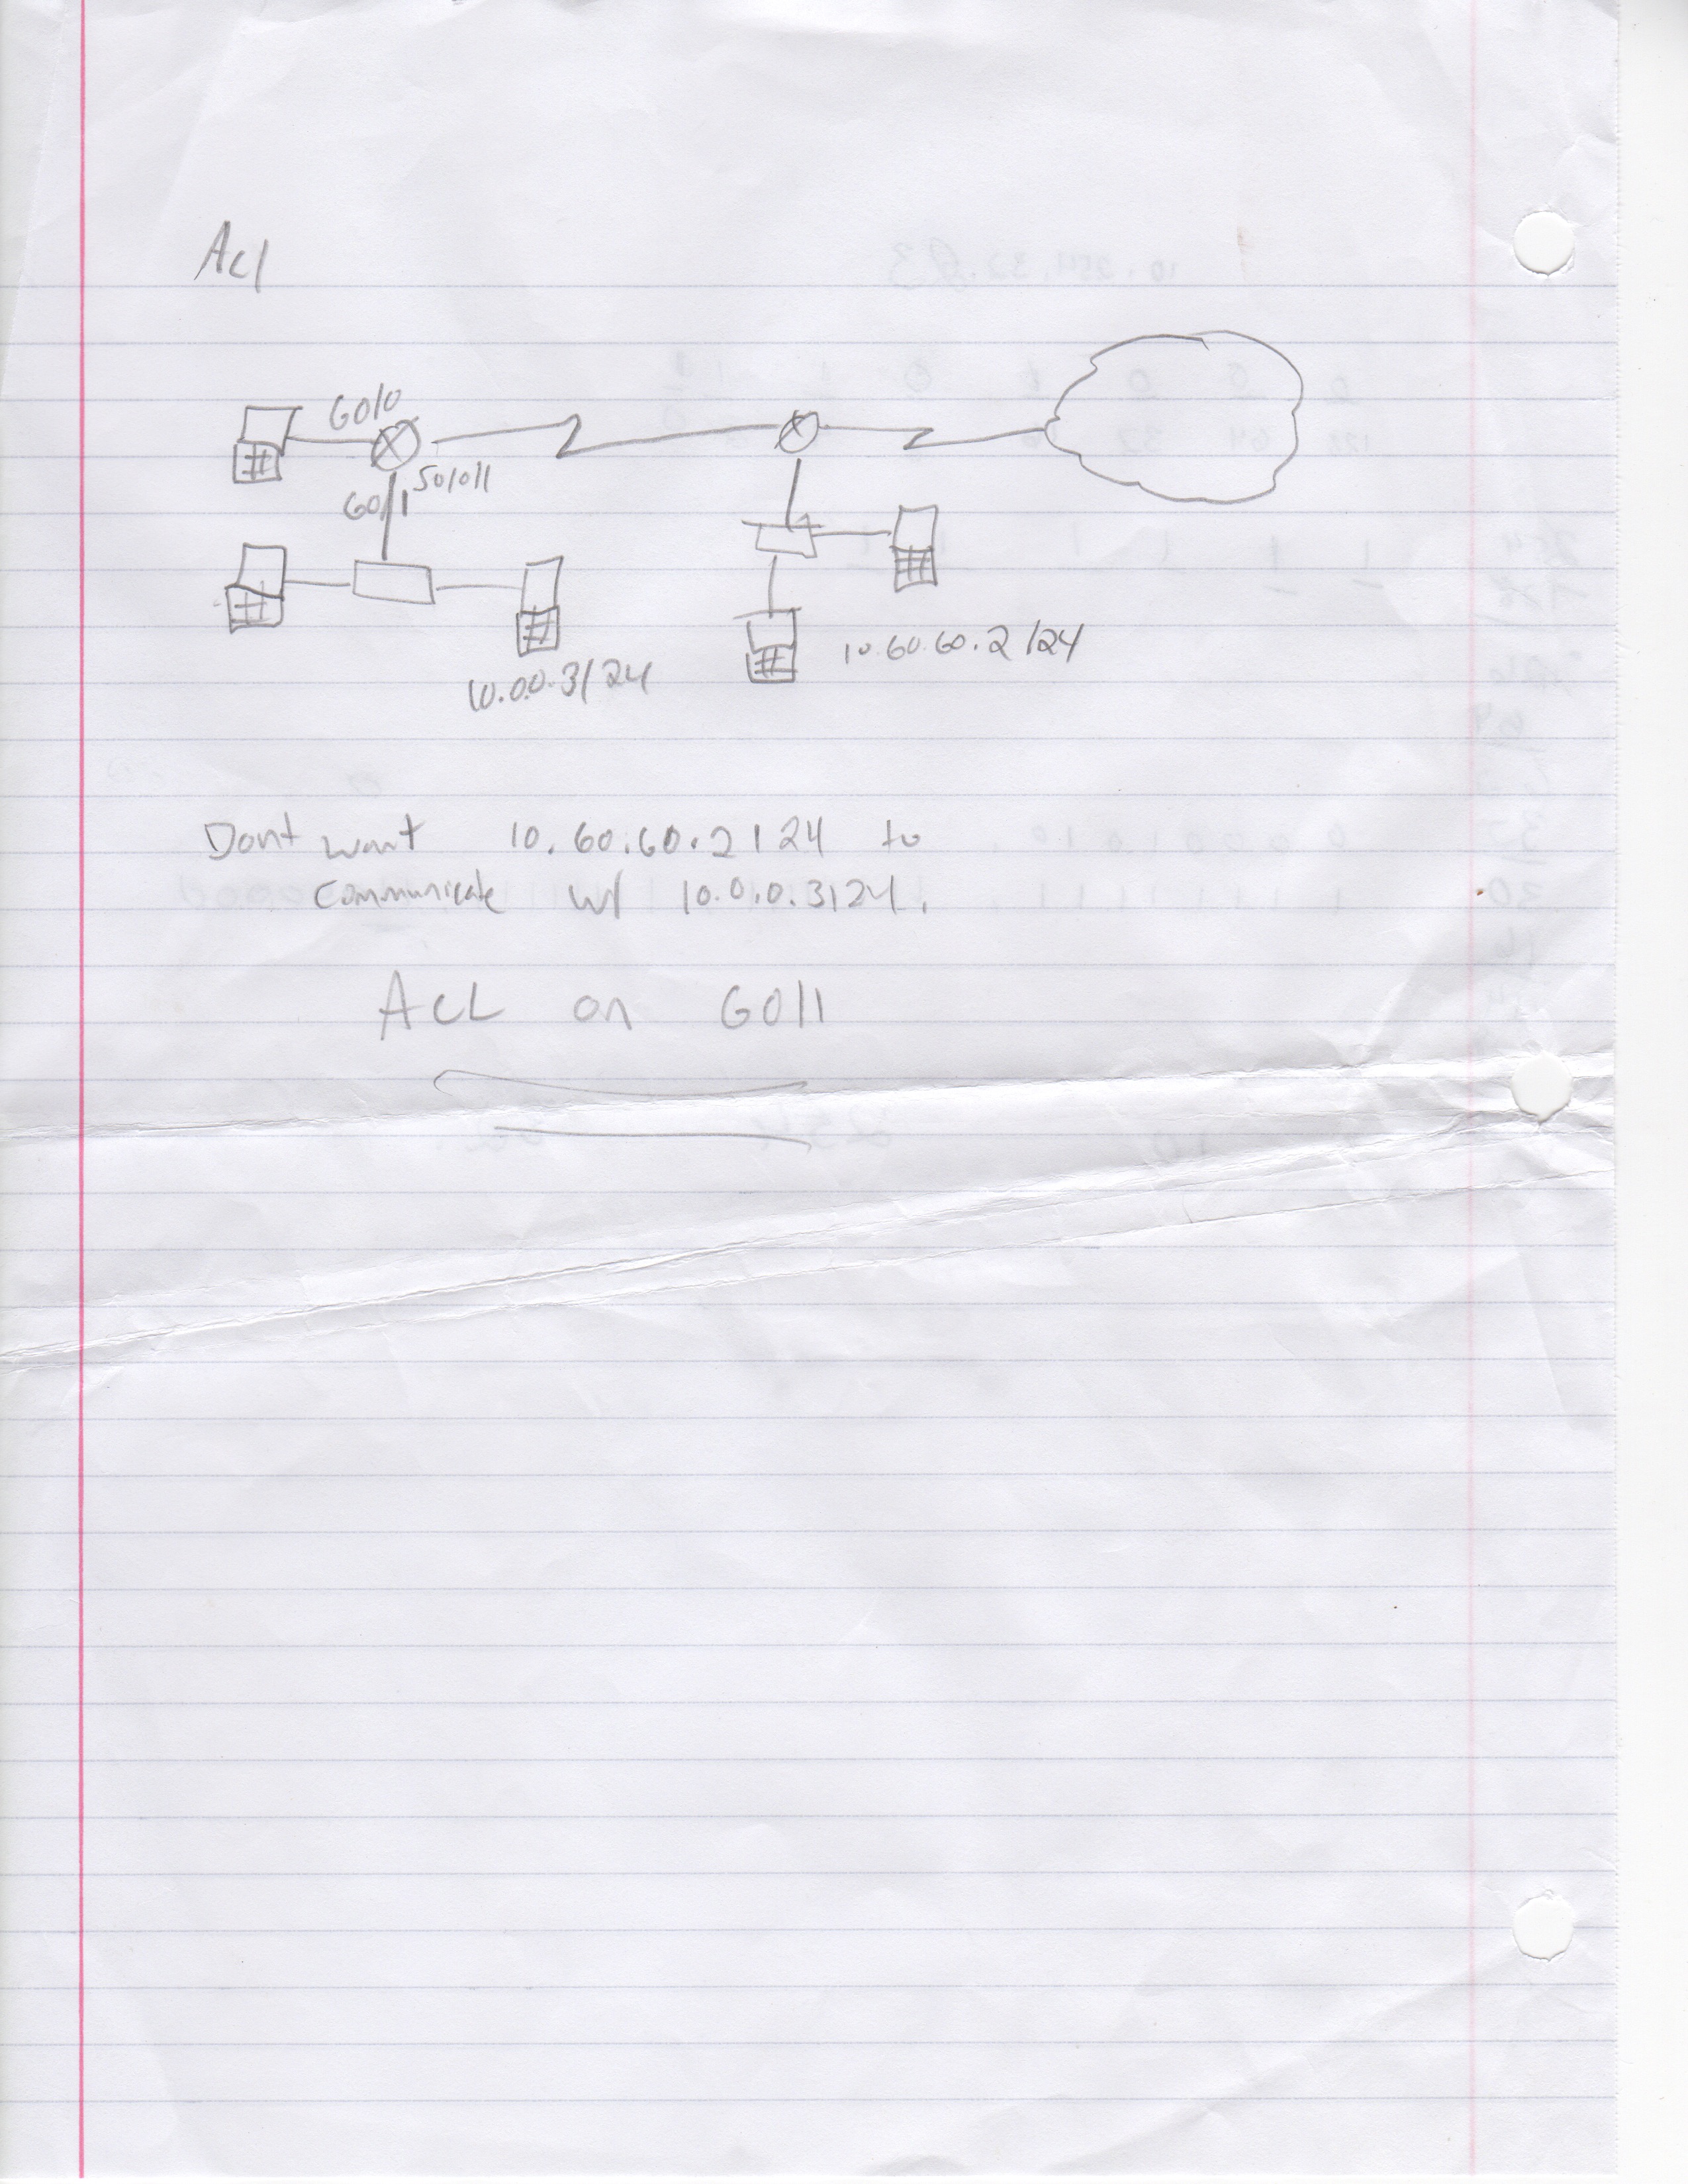 Acl
G0/0
S0/0/1
G0/1
10.0.0.3/24
10.60.60.2/24
Dont want 10.60.60.2/24 to
communicate w/ 10.0.0.3/24.
ACL on G0/1